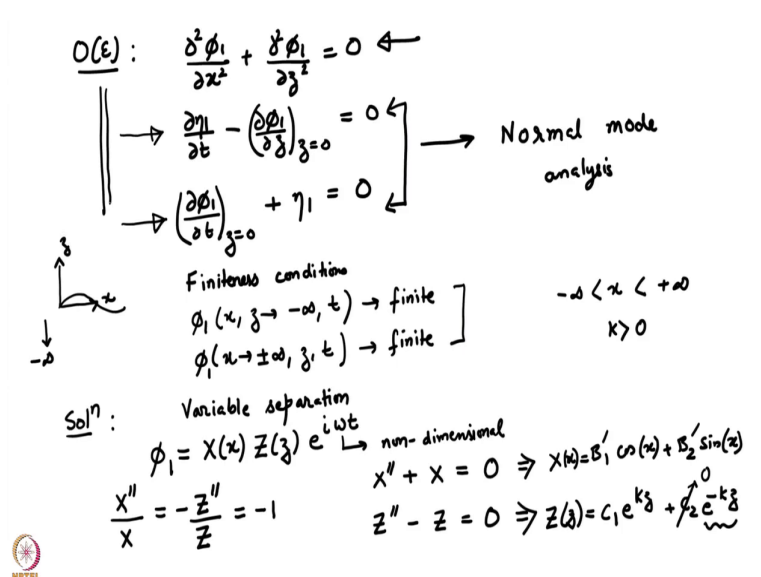 O(ε) : ∂²φ₁/∂x² + ∂²φ₁/∂z² = 0 ←
→ ∂η₁/∂t − (∂φ₁/∂z)_{z=0} = 0
→ (∂φ₁/∂t)_{z=0} + η₁ = 0
→ Normal mode
analysis
z
x
-∞
Finiteness conditions
φ₁(x, z→ -∞, t) → finite
φ₁(x→±∞, z, t) → finite
-∞ < x < +∞
k > 0
Solⁿ : Variable separation
φ₁ = X(x) Z(z) e^{iωt} ↳ non-dimensional
X''/X = -Z''/Z = -1
X'' + X = 0 ⇒ X(x) = B₁' cos(x) + B₂' sin(x)
Z'' - Z = 0 ⇒ Z(z) = C₁ e^{kz} + C₂ e^{-kz}
0
NPTEL